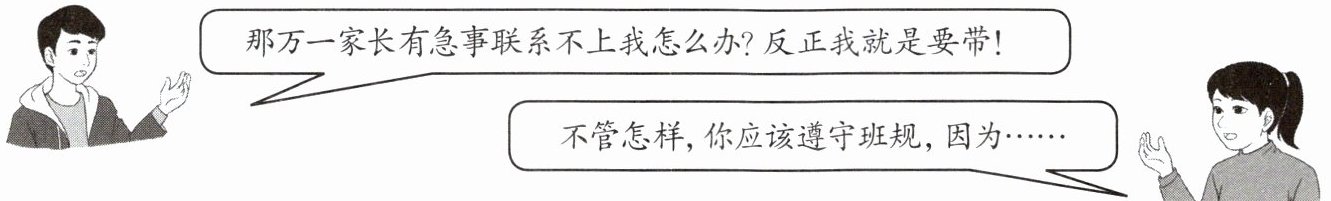 那万一家长有急事联系不上我怎么办?反正我就是要带!
不管怎样,你应该遵守班规,因为……